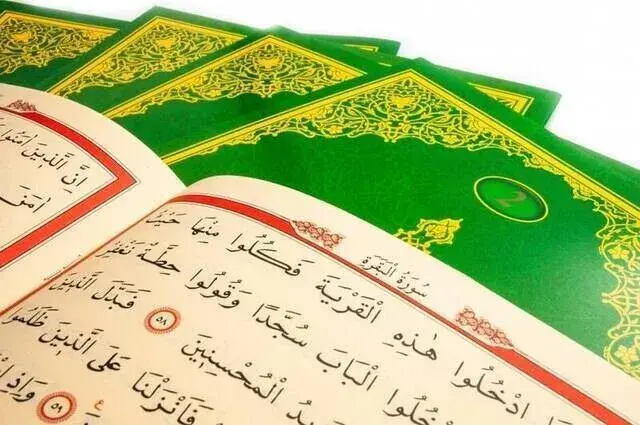 2
سُورَةُ الْبَقَرَةِ
ادْخُلُوا هٰذِهِ الْقَرْيَةَ فَكُلُوا مِنْهَا
الْبَابَ سُجَّدًا وَقُولُوا حِطَّةٌ نَغْفِرْ
الْمُحْسِن۪ينَ ٥٨ فَبَدَّلَ الَّذ۪ينَ
فَاَنْزَلْنَا عَلَى الَّذ۪ينَ ظَلَمُوا
٥٩ وَاِذِ
اِنَّ الَّذ۪ينَ اٰمَنُوا
اٰمَنَ